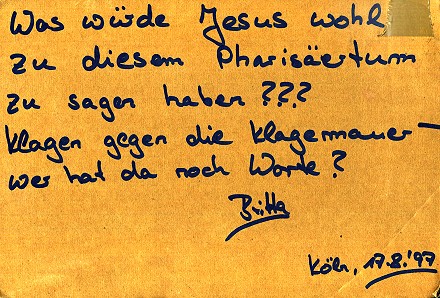 Was würde Jesus wohl
zu diesem Pharisäertum
zu sagen haben ???
Klagen gegen die Klagemauer –
wer hat da noch Worte ?
Britta
Köln, 17.8.'97